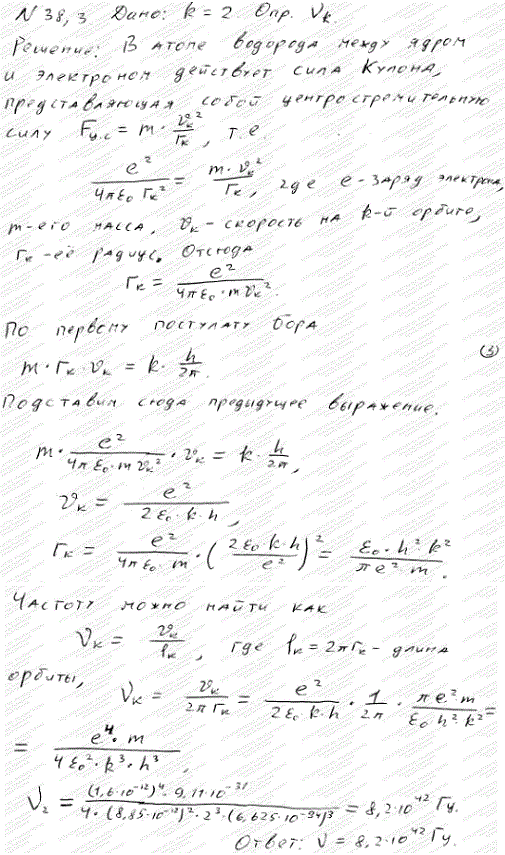 N 38,3 Дано: k = 2 Опр. ν_k.
Решение: В атоме водорода между ядром
и электроном действует сила Кулона,
представляющая собой центростремительную
силу F_ц.с = m · v_k²/r_k, т.е
e²/(4πε₀ r_k²) = m·v_k²/r_k, где e - заряд электрона,
m - его масса, v_k - скорость на k-й орбите,
r_k - её радиус. Отсюда
r_k = e²/(4πε₀·m v_k²).
По первому постулату Бора
(3)
m·r_k·v_k = k·h/2π.
Подставим сюда предидущее выражение.
m·e²/(4πε₀·m v_k²)·v_k = k·h/2π,
v_k = e²/(2ε₀·k·h),
r_k = e²/(4πε₀·m)·(2ε₀·k·h/e²)² = ε₀·h²k²/(πe²m).
Частоту можно найти как
ν_k = v_k/l_k, где l_k = 2πr_k - длина
орбиты,
ν_k = v_k/(2πr_k) = e²/(2ε₀ k·h)·1/2π·πe²m/(ε₀h²·k²) =
= e⁴·m/(4ε₀²·k³·h³),
ν₂ = (1,6·10⁻¹²)⁴·9,11·10⁻³¹/(4·(8,85·10⁻¹²)²·2³·(6,625·10⁻³⁴)³) = 8,2·10¹² Гц.
Ответ: ν = 8,2·10¹² Гц.